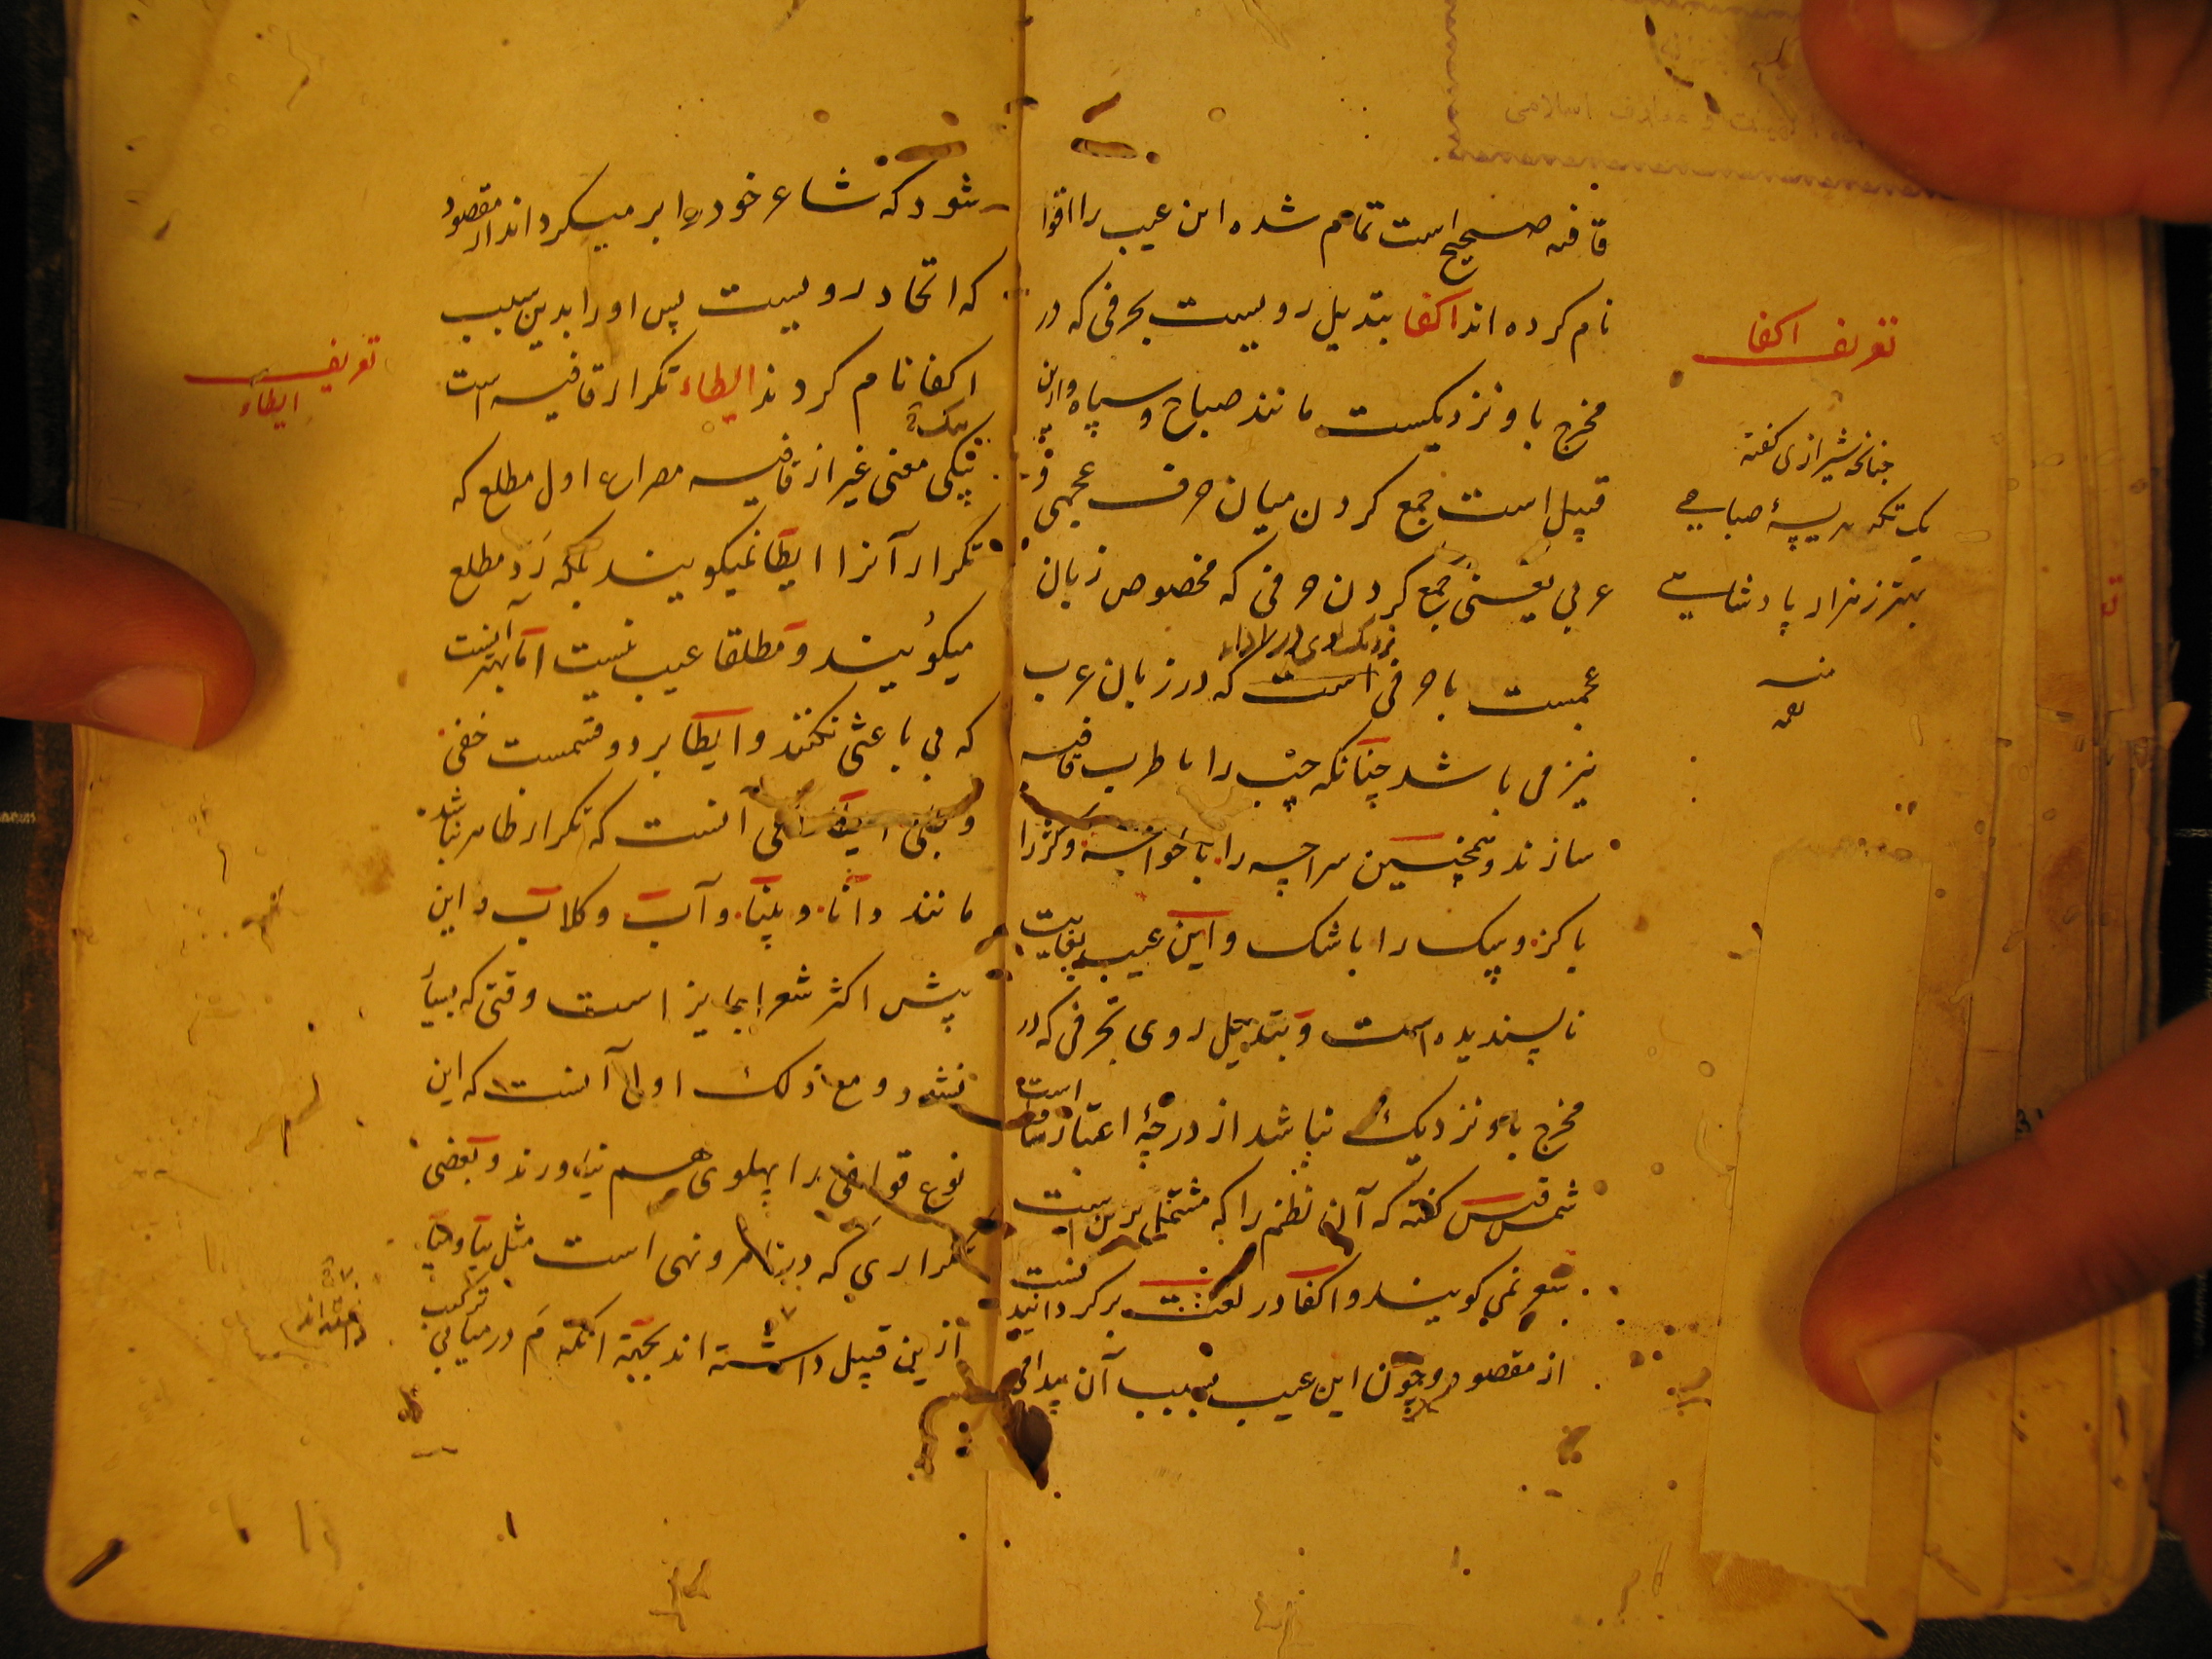 قافیه صحیح است تمام شده این عیب را اقوا
نام کرده اند اکفا بتدیل رویست بحرفی که در
مخرج باو نزدیکست مانند صباح و سپاه و ازین
قبیل است جمع کردن میان حرف عجمی و
عربی یعنی جمع کردن حرفی که مخصوص زبان
عجمست با حرفی است که در زبان عرب
نیز می باشد چنانکه چپ را با طرب قافیه
سازند و همچنین سراچه را با خواجه و کژ را
با کز و پیک را با شک و این عیب بغایت
ناپسندیده است و بتدیل روی بحرفی که در
مخرج باو نزدیک نباشد از درجهٔ اعتبار ساقط است
شمس قیس گفته که آن نظم را که مشتمل برین است
شعر نمی گویند و اکفا در لغت برگردانیدنست
از مقصود و چون این عیب بسبب آن پیدا می
تعریف اکفا
چنانچه شیرازی گفته
یک تکه هریسهٔ صباحی
بهتر ز هزار پادشاهی
منه
شود که شاعر خود را بر میگرداند از مقصود
که اتحاد رویست پس او را بدین سبب
اکفا نام کردند ایطاء تکرار قافیه است
بیکی معنی غیر از قافیه مصراع اول مطلع که
تکرار آنرا ایطا نمیگویند بلکه رد مطلع
میگویند و مطلقا عیب نیست اما بهتر آنست
که بی باعثی نکنند و ایطا بر دو قسمست خفی
و جلی ایطا خفی آنست که تکرار ظاهر نباشد
مانند دانا و بینا و آب و کلاب و این
پیش اکثر شعرا جایز است وقتی که بسیار
نشود و مع ذلک اولی آنست که این
نوع قوافی را پهلوی هم نیاورند و بعضی
تکراری که در امر و نهی است مثل بیا و میا
ازین قبیل داشته اند بجهة آنکه م در میا بی ترکیب
تعریف
ایطاء